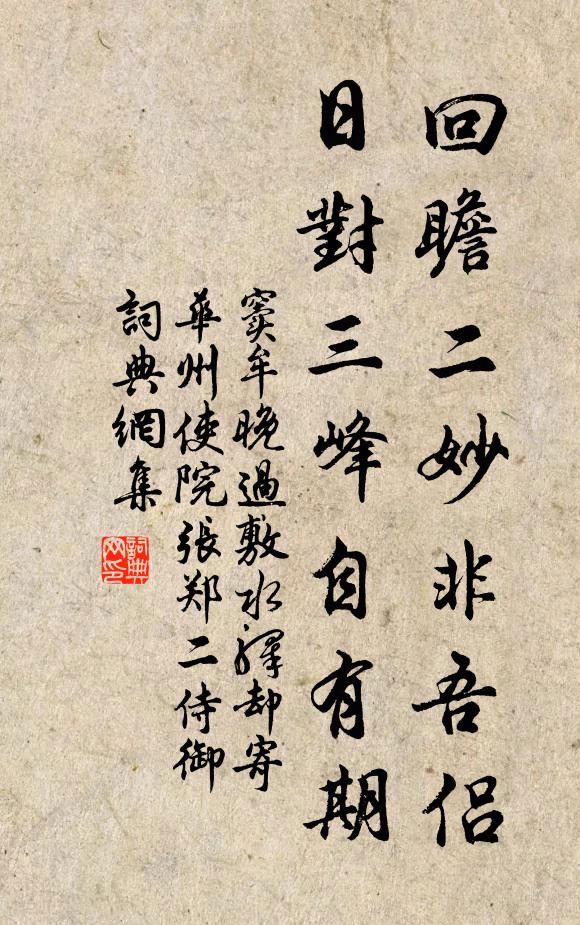 回瞻二妙非吾侣
日對三峰自有期
竇牟晚過敷水驛却寄
華州使院張郑二侍御
詞典網集
詞典
网印